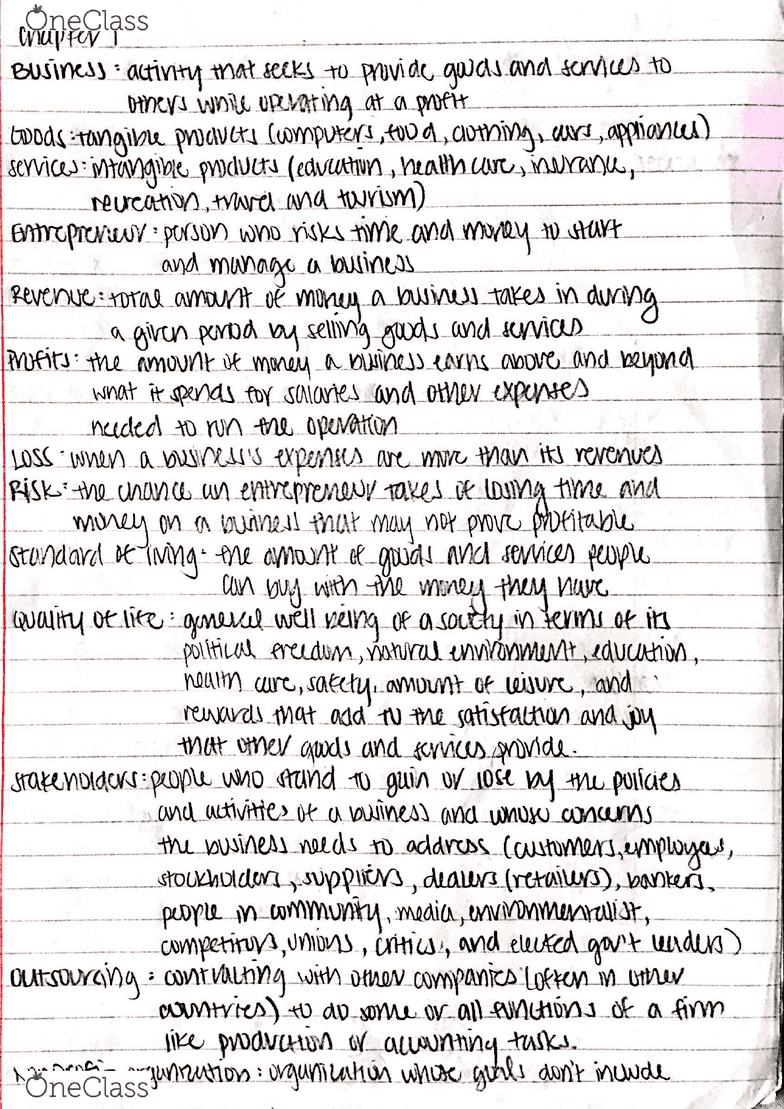 OneClass
Chapter 1
Business: activity that seeks to provide goods and services to
others while operating at a profit
Goods: tangible products (computers, food, clothing, cars, appliances)
Services: intangible products (education, health care, insurance,
recreation, travel and tourism)
Entrepreneur: person who risks time and money to start
and manage a business
Revenue: total amount of money a business takes in during
a given period by selling goods and services
Profits: the amount of money a business earns above and beyond
what it spends for salaries and other expenses
needed to run the operation
Loss: when a business's expenses are more than its revenues
Risk: the chance an entrepreneur takes of losing time and
money on a business that may not prove profitable
Standard of living: the amount of goods and services people
can buy with the money they have
Quality of life: general well being of a society in terms of its
political freedom, natural environment, education,
health care, safety, amount of leisure, and
rewards that add to the satisfaction and joy
that other goods and services provide.
Stakeholders: people who stand to gain or lose by the policies
and activities of a business and whose concerns
the business needs to address (customers, employees,
stockholders, suppliers, dealers (retailers), bankers,
people in community, media, environmentalist,
competitors, unions, critics, and elected gov't leaders)
Outsourcing: contracting with other companies (often in other
countries) to do some or all functions of a firm
like production or accounting tasks.
organization: organization whose goals don't include
OneClass